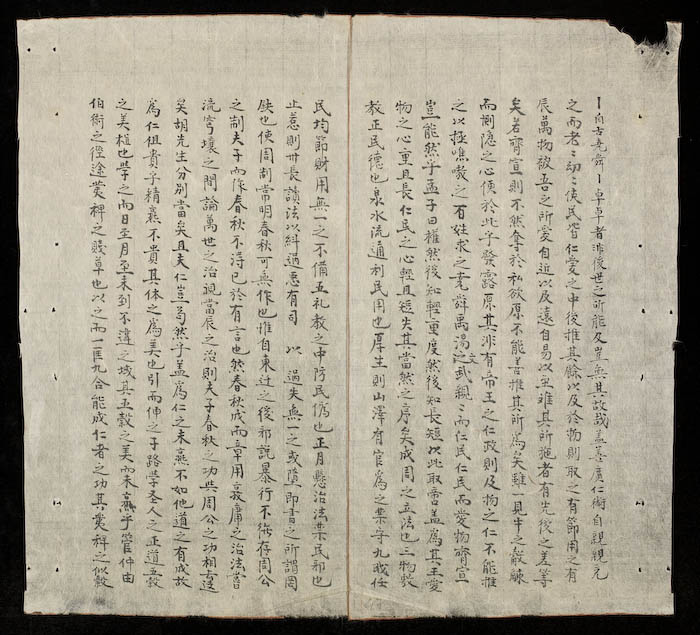 自古堯舜 卓卓者非後世之所能及豈無其故哉盖善廣仁術自親親兄
之而老々幼々使民皆仁愛之中後推其餘以及於物則取之有節用之有
辰萬物被吾之所愛自近以及遠自易以至难其所施者有先後之差等
矣若齊宣則不然奪於私欲原不能言推其所為矣雖一見牛之觳觫
而惻隐之心便於此乎發露原其非有帝王之仁政則及物之仁不能推
之以極噍噭之一有姑求之堯舜禹湯文武親々而仁民仁民而愛物齊宣
豈能然乎孟子曰權然後知輕重度然後知長短以此取喻盖為其王愛
物之心重且長仁民之心輕且短失其當然之序矣成周之立法也三物教
教正民德也泉水流通利民用也厚生則山澤有官為之禁守九職任
民均節財用無一之不備五礼教之中防民偽也正月懸治法禁民邪也
止惹則卅長讀法以糾過惡有司 以 過失無一之或隳即書之所謂罔
缺也使周制常明春秋可無作也惟自東迁之後邪說暴行不能存周公
之制夫子而作春秋不得已於有言也然春秋成而章用哀庸之治法當
流穹壤之間論萬世之治視當辰之治則夫子春秋之功與周公之功相遠
矣胡先生分別當矣且夫仁豈苟然乎盖為仁之未熹不如他道之有成故
為仁祖貴乎精熹不貴其体之為美也引而伸之子路學圣人之正道五穀
之美植也學之而日至月至未到不違之域其五穀之美而未熹乎管仲由
伯術之徑途荑稗之賤草也以之而一匡九合能成仁者之功其荑稗之似穀